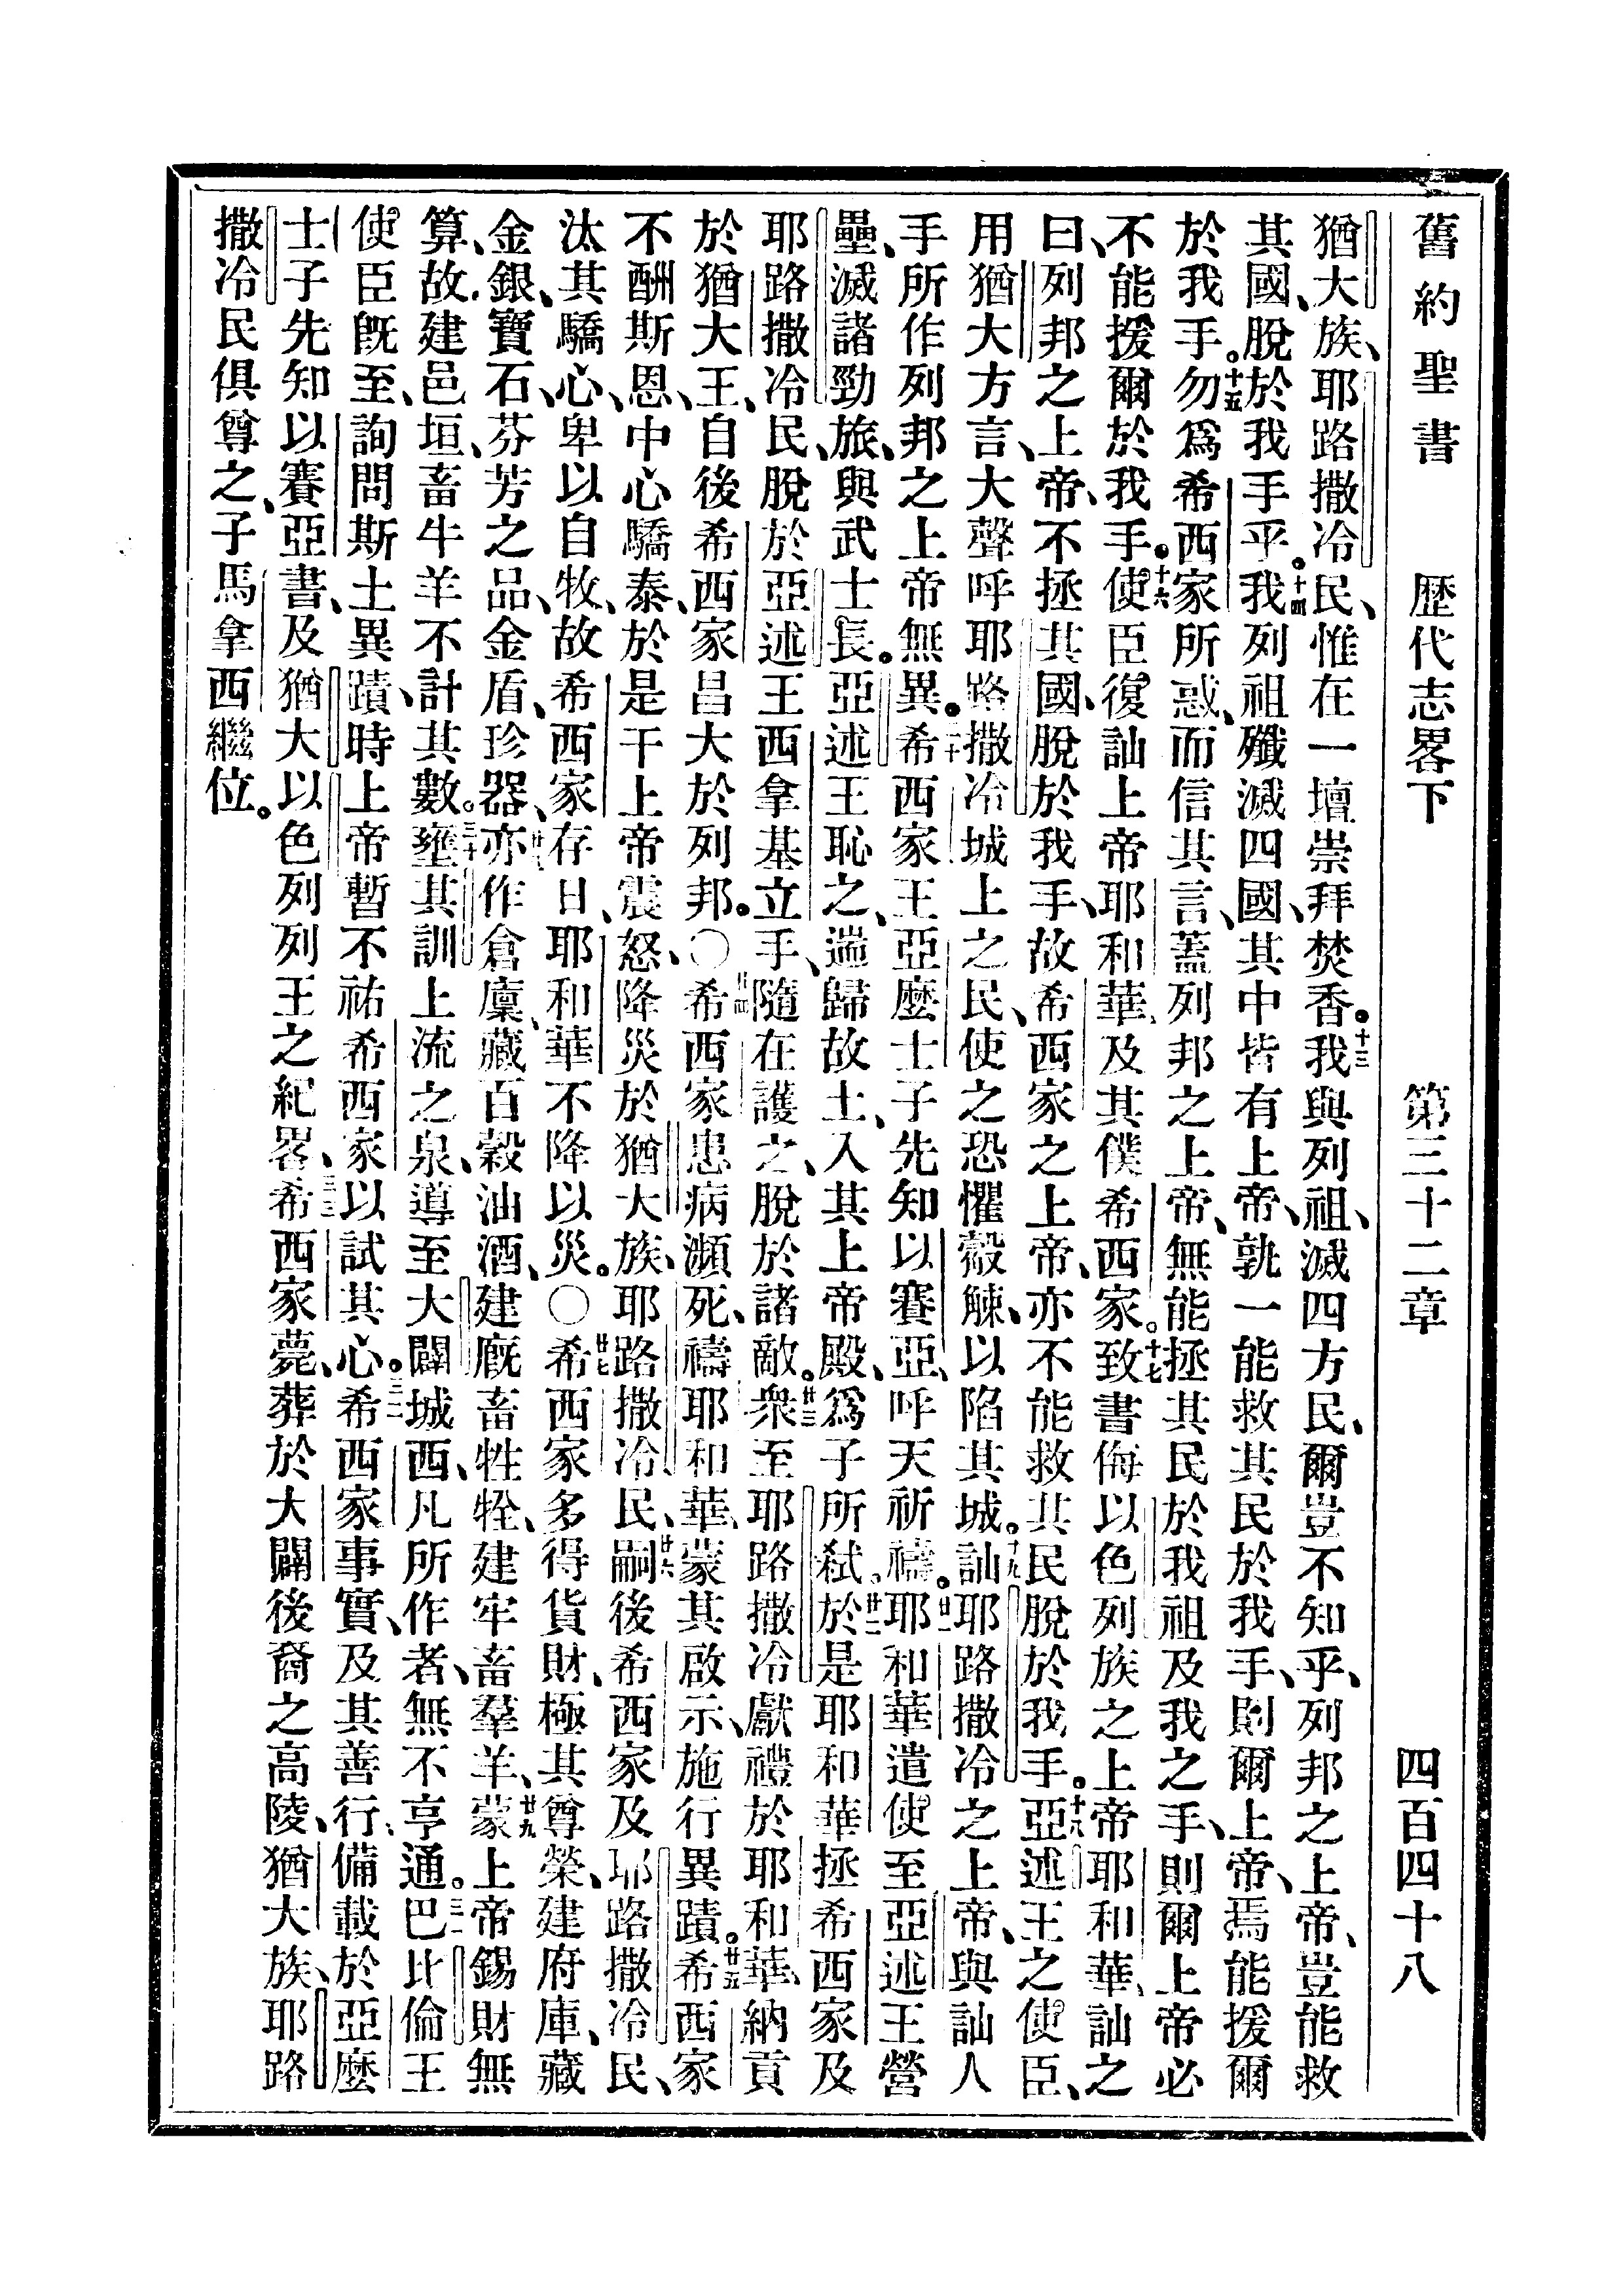 舊約聖書 歷代志畧下 第三十二章 四百四十八
猶大族、耶路撒冷民、惟在一壇崇拜焚香。十三我與列祖、滅四方民、爾豈不知乎、列邦之上帝、豈能救
其國、脫於我手乎。十四我列祖殲滅四國、其中皆有上帝、孰一能救其民於我手、則爾上帝、焉能援爾
於我手。十五勿爲希西家所惑、而信其言、蓋列邦之上帝、無能拯其民於我祖及我之手、則爾上帝必
不能援爾於我手。十六使臣復訕上帝耶和華、及其僕希西家。十七致書侮以色列族之上帝耶和華、訕之
曰、列邦之上帝、不拯其國、脫於我手、故希西家之上帝、亦不能救其民脫於我手。十八亞述王之使臣、
用猶大方言、大聲呼耶路撒冷城上之民、使之恐懼觳觫、以陷其城。十九訕耶路撒冷之上帝、與訕人
手所作列邦之上帝無異。二十希西家王、亞麼士子先知以賽亞、呼天祈禱。廿一耶和華遣使至亞述王營
壘、滅諸勁旅、與武士長。亞述王恥之、遄歸故土、入其上帝殿、爲子所弑。廿二於是耶和華拯希西家及
耶路撒冷民、脫於亞述王西拿基立手、隨在護之、脫於諸敵。廿三衆至耶路撒冷、獻禮於耶和華、納貢
於猶大王、自後希西家昌大於列邦。○廿四希西家患病瀕死、禱耶和華、蒙其啟示、施行異蹟。廿五希西家
不酬斯恩、中心驕泰、於是干上帝震怒、降災於猶大族、耶路撒冷民、廿六嗣後希西家及耶路撒冷民、
汰其驕心、卑以自牧、故希西家存日、耶和華不降以災。○廿七希西家多得貨財、極其尊榮、建府庫、藏
金銀、寶石、芬芳之品、金盾、珍器、廿八亦作倉廩、藏百穀油酒、建廐畜牲牷、建牢畜羣羊、廿九蒙上帝錫財無
算、故建邑垣、畜牛羊不計其數。三十壅其訓上流之泉、導至大闢城西、凡所作者、無不亨通。三一巴比倫王
使臣旣至、詢問斯土異蹟、時上帝暫不祐希西家、以試其心。三二希西家事實、及其善行、備載於亞麼
士子先知以賽亞書、及猶大以色列列王之紀畧、三三希西家薨、葬於大闢後裔之高陵、猶大族、耶路
撒冷民俱尊之、子馬拿西繼位。